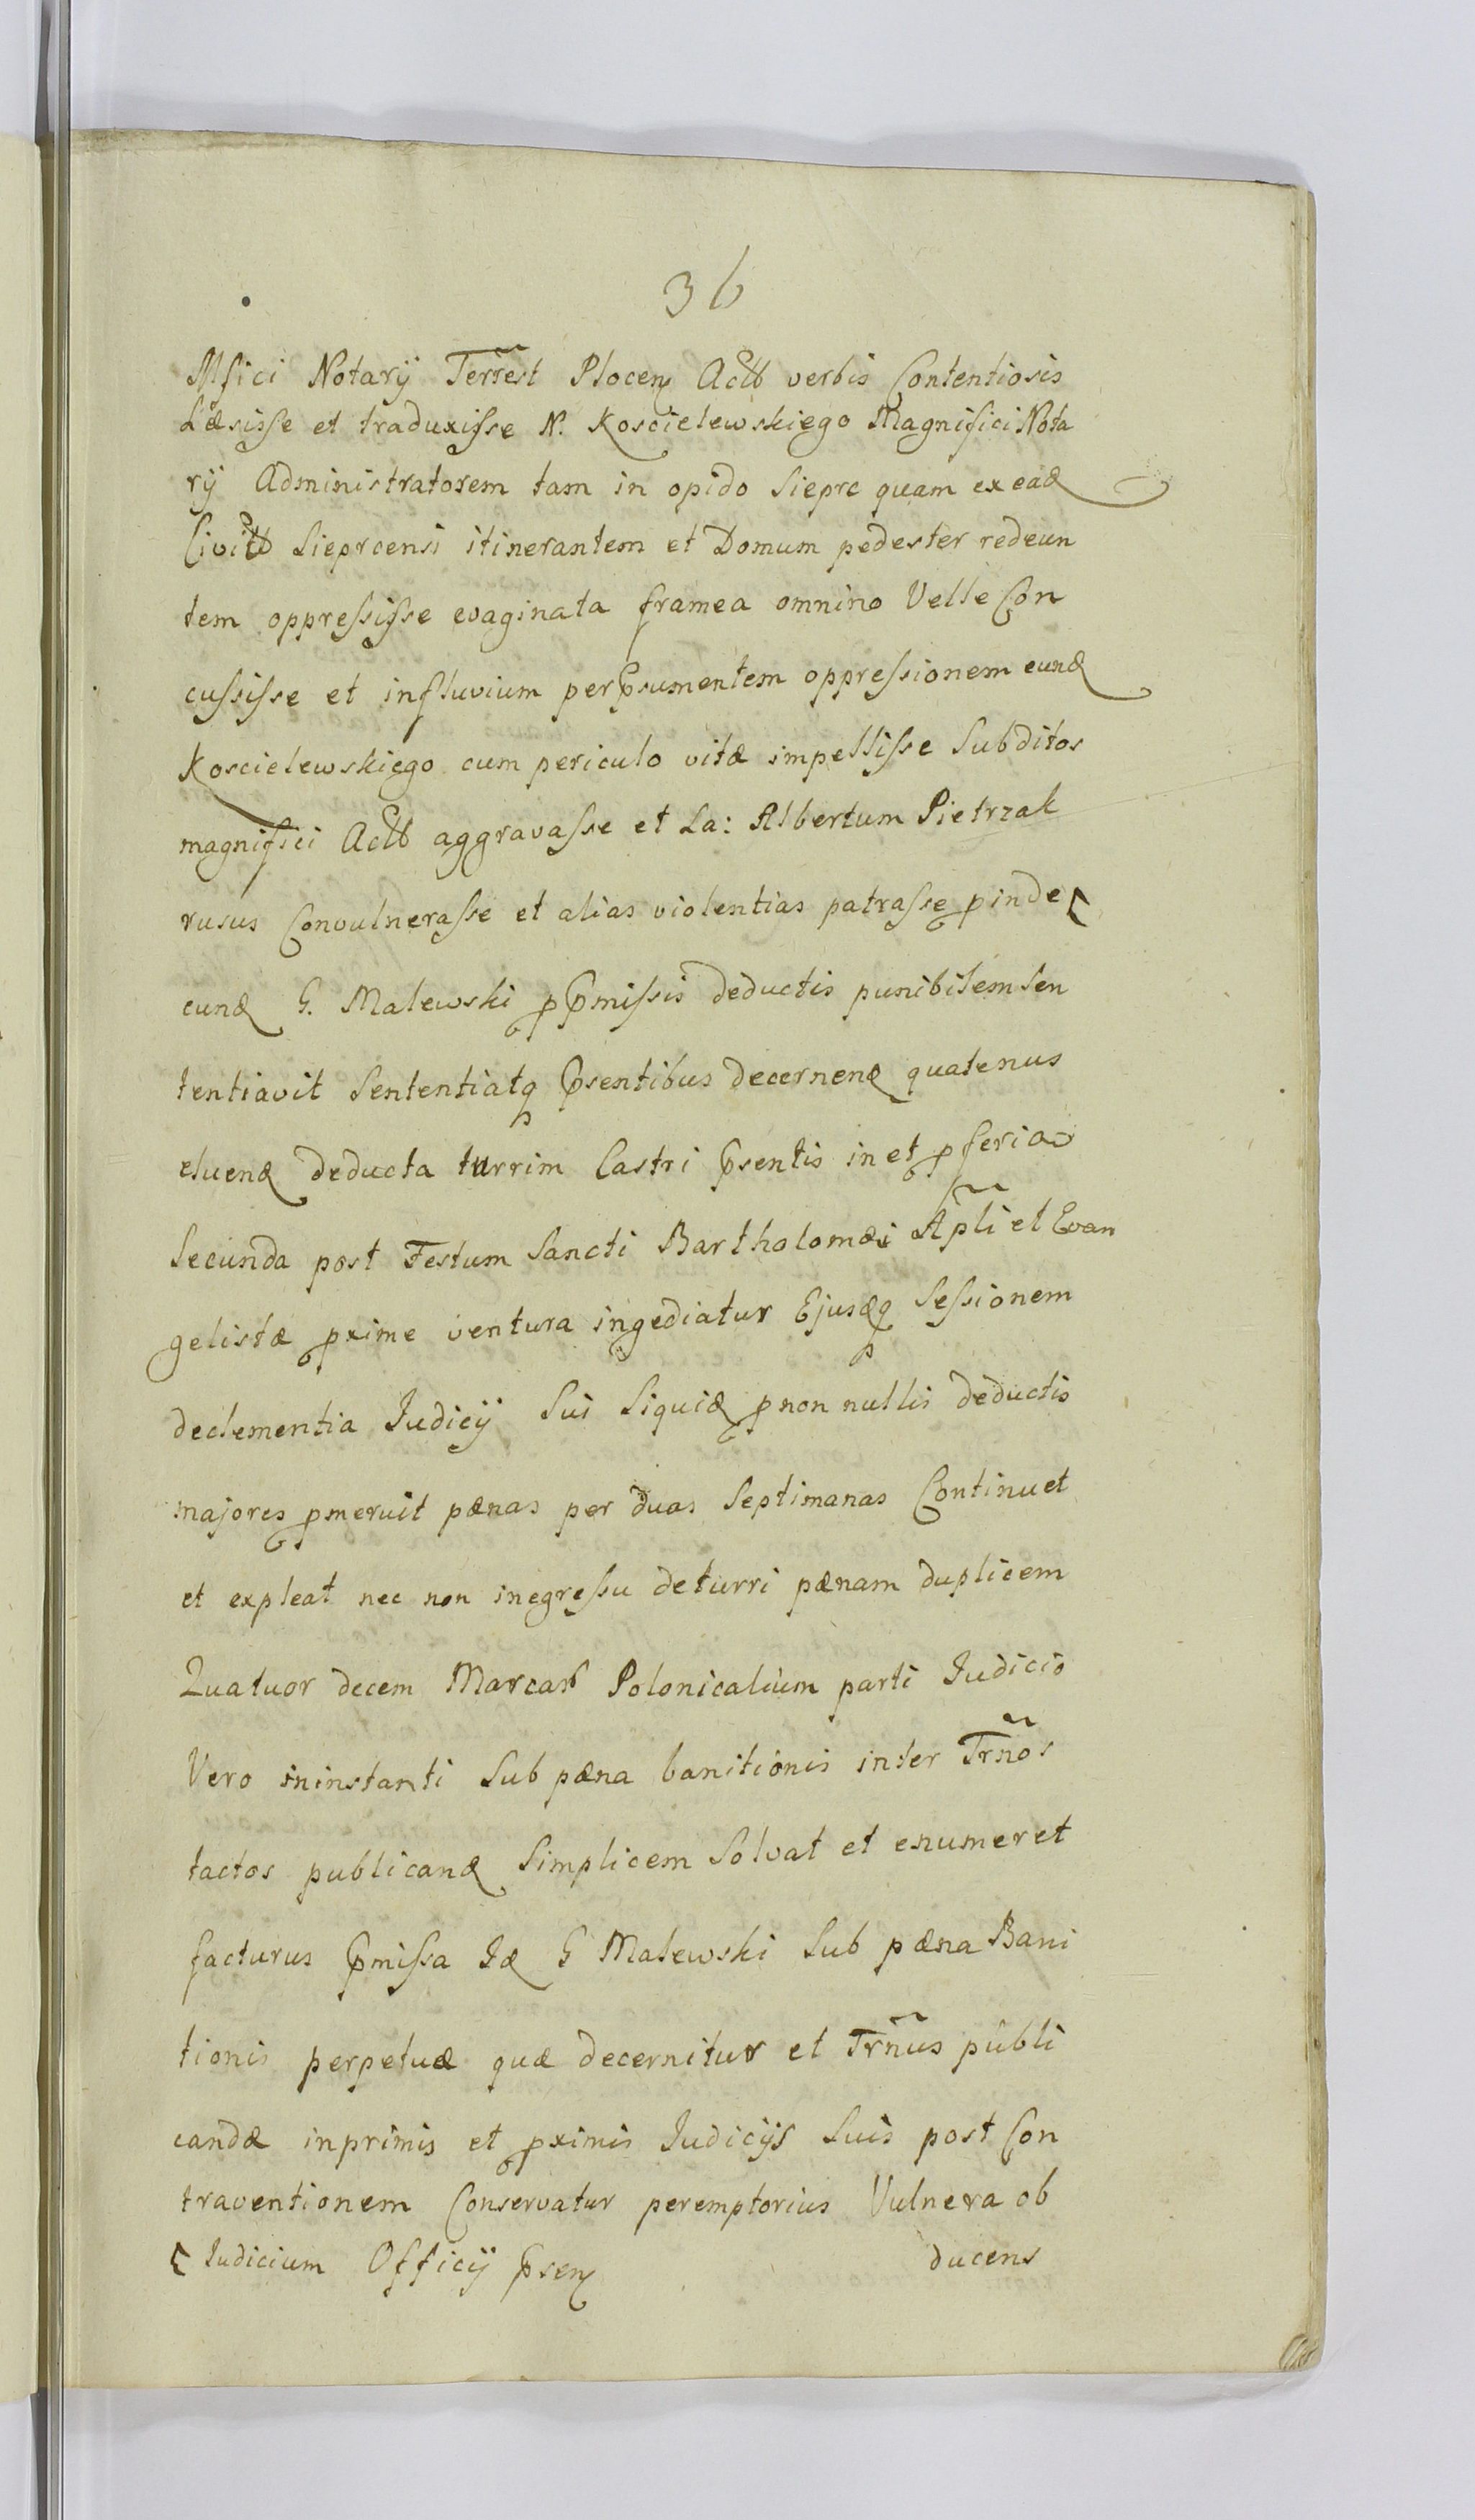 36
Mfici Notarÿ Terrest Plocen Actt verbis Contentiosis
Læsisse et traduxisse N. Koscielewskiego Magnifici Nota
rÿ Administratorem tam in opido Sieprc quam ex ead
Civitt Sieprcensi itinerantem et Domum pedester redeun
tem oppressisse evaginata framea omnino Velle Con
cussisse et influvium per psumentem oppressionem eund
Koscielewskiego cum periculo vitæ impellisse Subditos
magnifici Actt aggravasse et La: Albertum Pietrzak
rusus Convulnerasse et alias violentias patrasse pinde
eund G. Malewski p pmissis deductis punibilem Sen
tentiavit Sententiatq psentibus decernend quatenus
eluend deducta turrim Castri psentis in et p feria
Secunda post Festum Sancti Bartholomæi Apli et Evan
gelistæ pxime ventura ingediatur Ejusdq Sessionem
declementia Judicÿ Sui Siquid p non nullis deductis
majores pmeruit pænas per duas Septimanas Continuet
et expleat nec non inegressu deturri pænam duplicem
Quatuor decem Marcar Polonicalium parti Judicio
Vero ininstanti Sub pæna banitionis inter Trnos
tactos publicand Simplicem Solvat et enumeret
facturus pmissa Id G Malewski Sub pæna Bani
tionis perpetuæ quæ decernitur et Trnus publi
candæ inprimis et pximis Judicÿs Suis post Con
traventionem Conservatur peremptorius Vulnera ob
Judicium Officÿ psen ducens